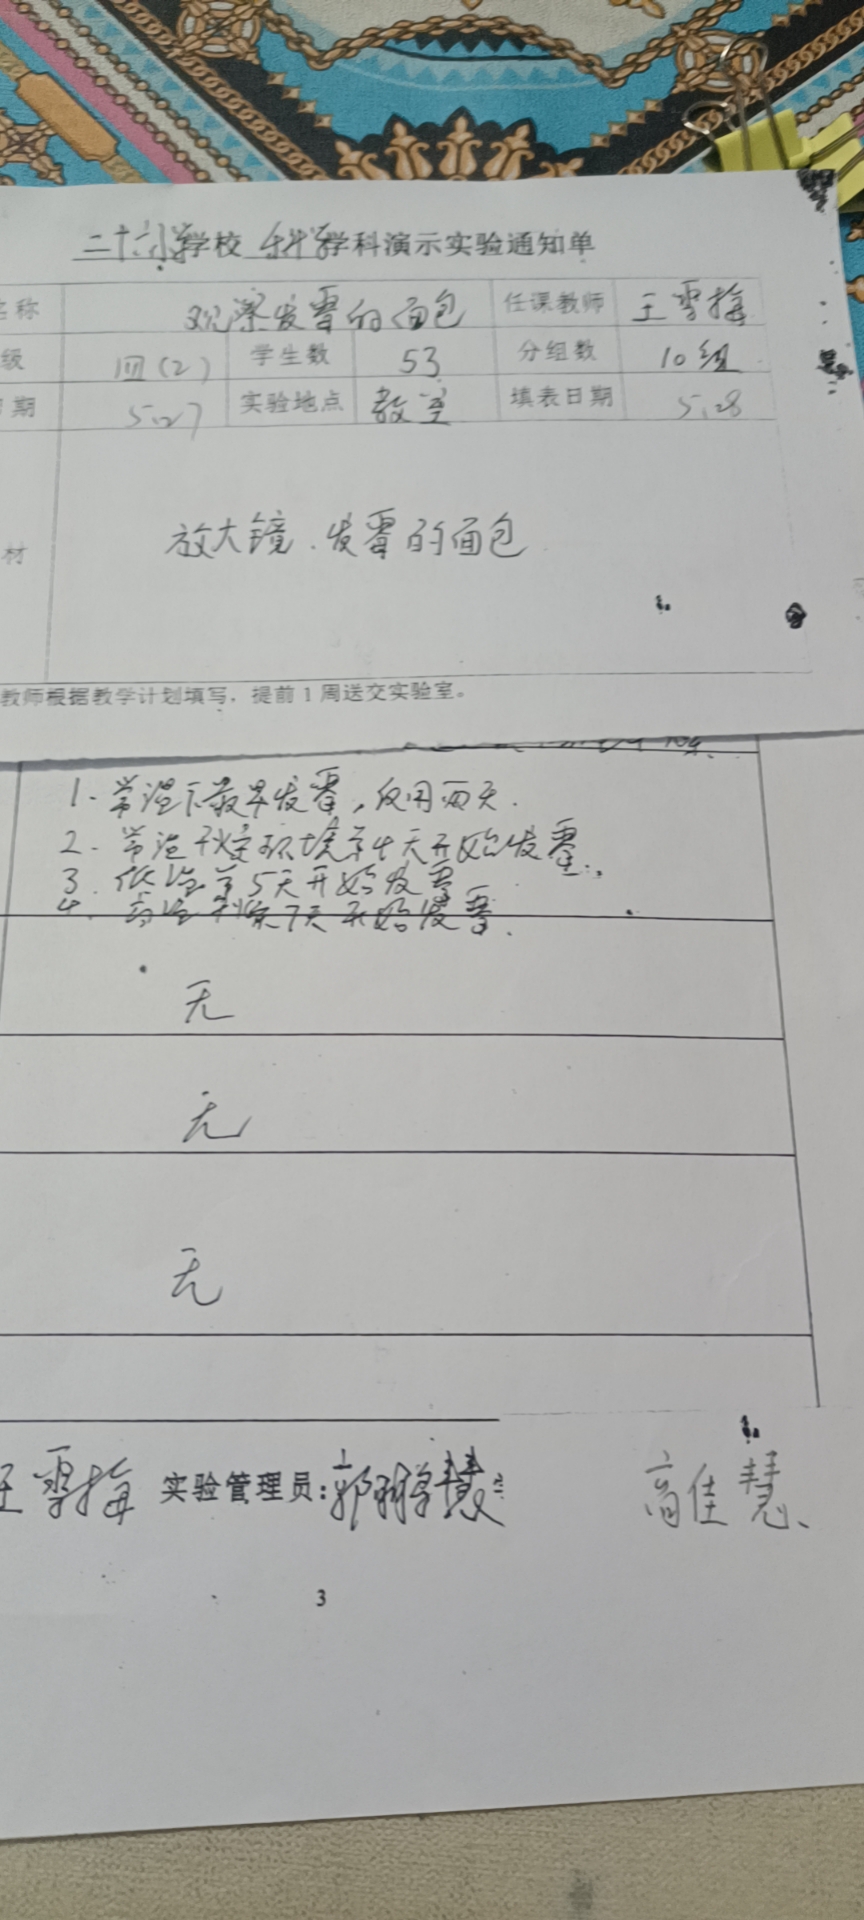 二十六小学学校 科学学科演示实验通知单
名称 观察发霉的面包 任课教师 王雪梅
级 四(2) 学生数 53 分组数 10组
期 5.27 实验地点 教室 填表日期 5.28
材 放大镜、发霉的面包
教师根据教学计划填写，提前1周送交实验室。
1. 常温下最早发霉，仅用两天.
2. 常温 环境第4天开始发霉.
3. 低温第5天开始发霉
4. 高温 7天开始发霉.
无
无
无
王雪梅 实验管理员: 高佳慧
3